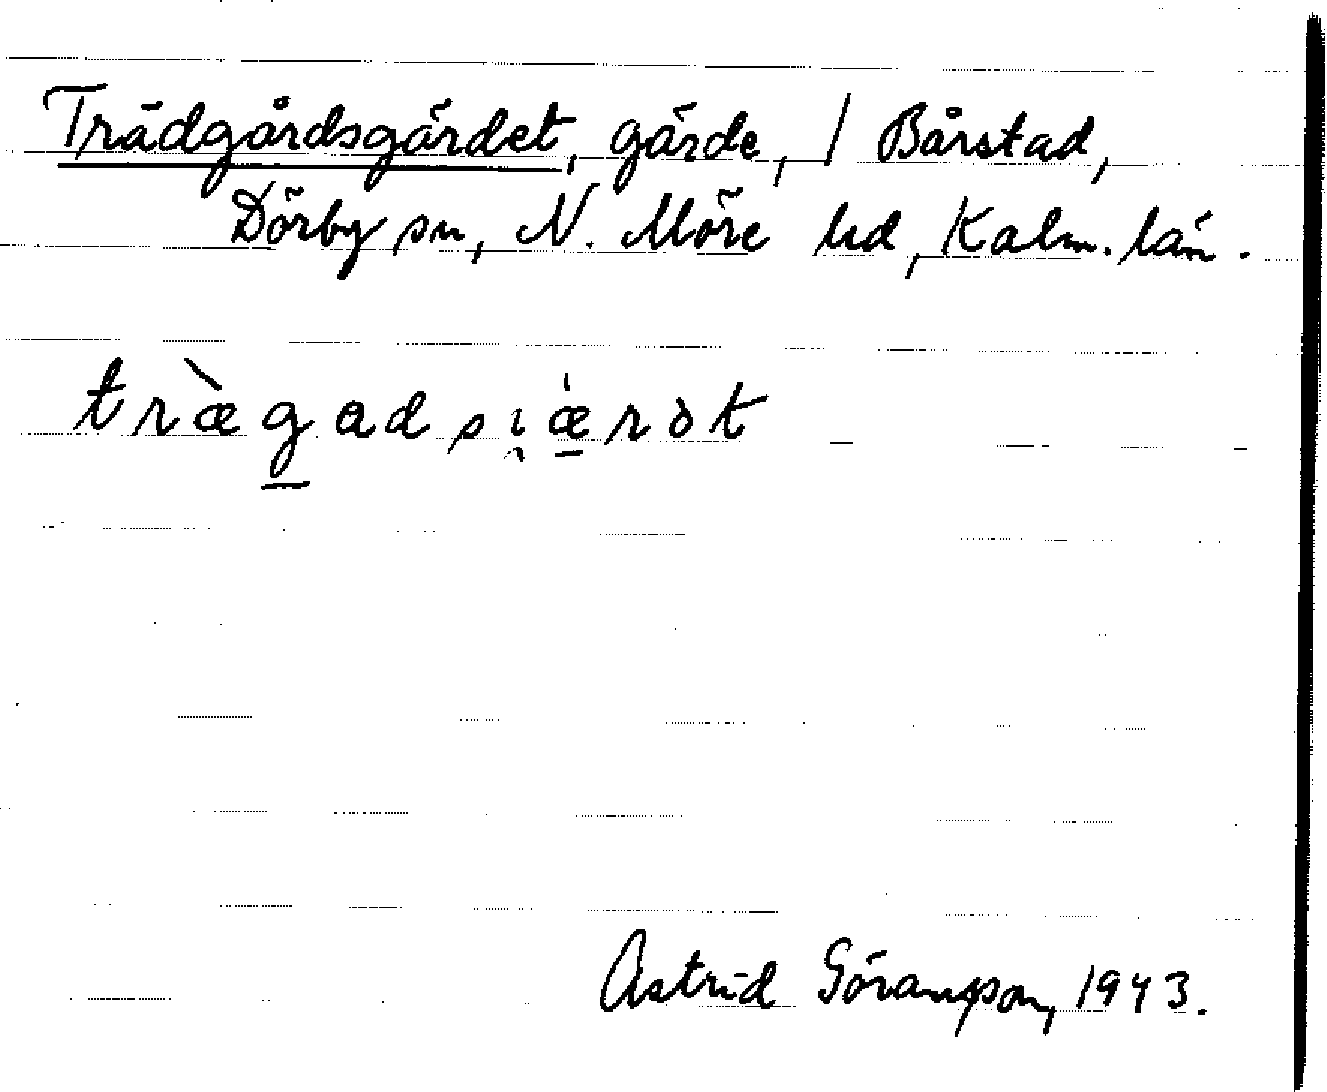 Trädgårdsgärdet, gärde, / Bårstad,
Dörby sn, N. Möre hd, Kalm. län.
træ̀g̲adsi̯æ̲̍rət
Astrid Göransson, 1943.